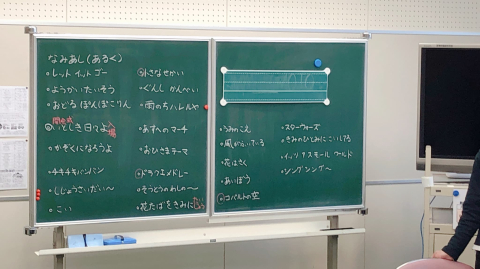 なみあし(あるく)
レットイットゴー
ようかいたいそう
おどるぽんぽこりん
開会式
いとしき日々よ
かぞくになろうよ
キキキリハンバン
しじょうさいだい〜
こい
小さなせかい
ぐんしかんべい
雨のちハレルヤ
あすへのマーチ
おひさまテーマ
ドラクエメドレー
そうとうのおしの〜
花たばをきみに
うみのこえ
風がふいている
花はさく
あいぼう
コバルトの空
スターウォーズ
きみのひとみにこいしてる
イッツアスモールワールド
シングシング〜